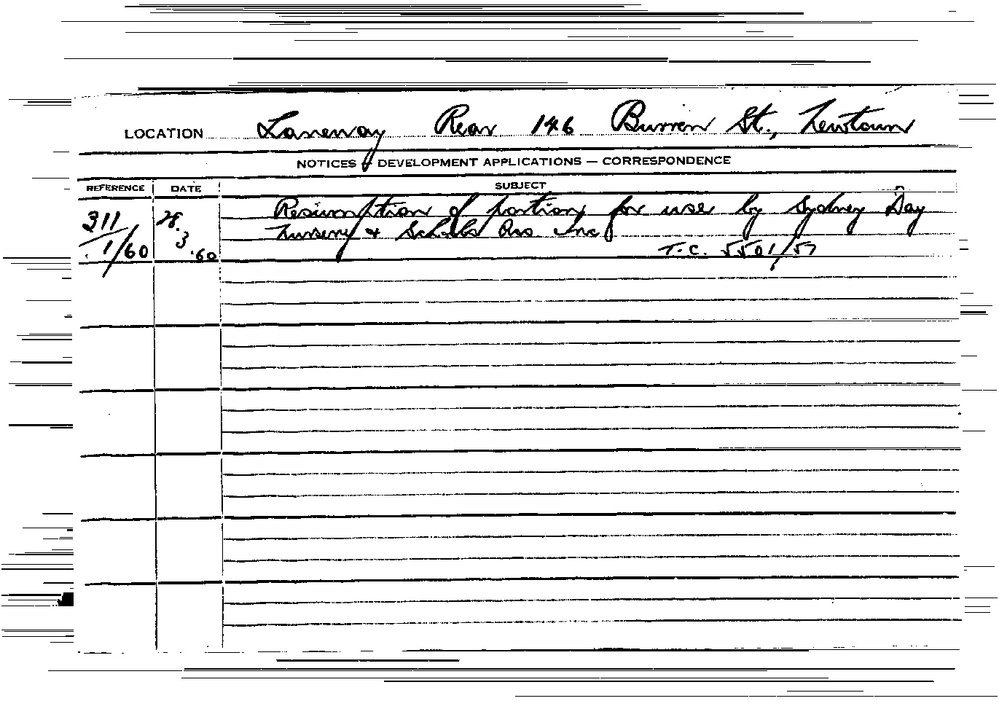 LOCATION Laneway Rear 146 Burren St., Newtown
NOTICES DEVELOPMENT APPLICATIONS — CORRESPONDENCE
REFERENCE DATE SUBJECT
311/1/60 28.3.60 Resumption of portion, for use by Sydney Day
Nursery & Schools Ass Inc
T.C. 5501/57